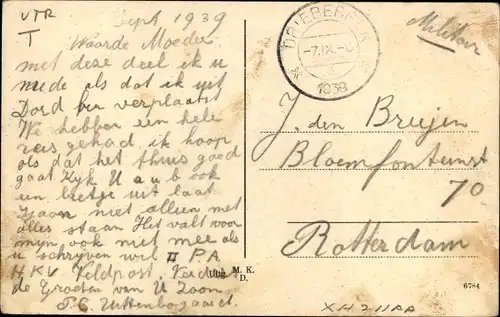 VTR
T
Sept 1939
Waarde Moeder
met deze deel ik u
mede als dat ik uit
Dord ben verplaatst
We hebben een hele
reis gehad ik hoop
als dat het thuis goed
gaat Kijk U a u b ook
een beetje uit laat
Zoon niet alleen met
alles staan Het valt voor
mijn ook niet mee als
u schrijven wil II P.A
H.K.V Veldpost.
de Groeten van U Zoon
P.C. Uittenbogaard.
Uitg. M. K.
D.
DRIEBERGEN
-7.IX
1939
Militair
J. den Breijen
Bloemfonteinst
70
Rotterdam
6784
XH211AA